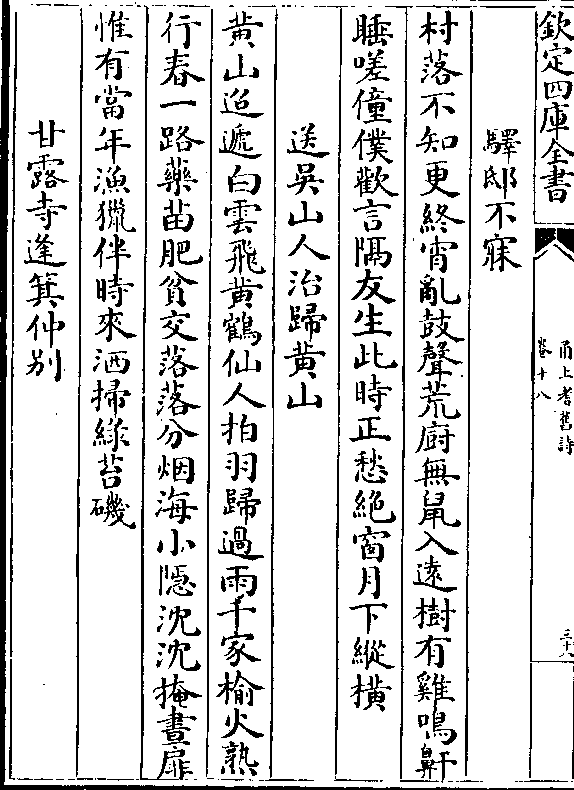 欽定四庫全書
甬上耆舊詩
卷十八
三十八
驛邸不寐
村落不知更終宵亂鼓聲荒廚無鼠入遠樹有雞鳴鼾
睡嗟僮僕歡言隔友生此時正愁絶窗月下縱橫
送吳山人治歸黄山
黄山迢遞白雲飛黄鶴仙人拍羽歸過雨千家榆火熟
行春一路藥苗肥貧交落落分烟海小隱沈沈掩晝扉
惟有當年漁獵伴時來洒掃綠苔磯
甘露寺逢箕仲别